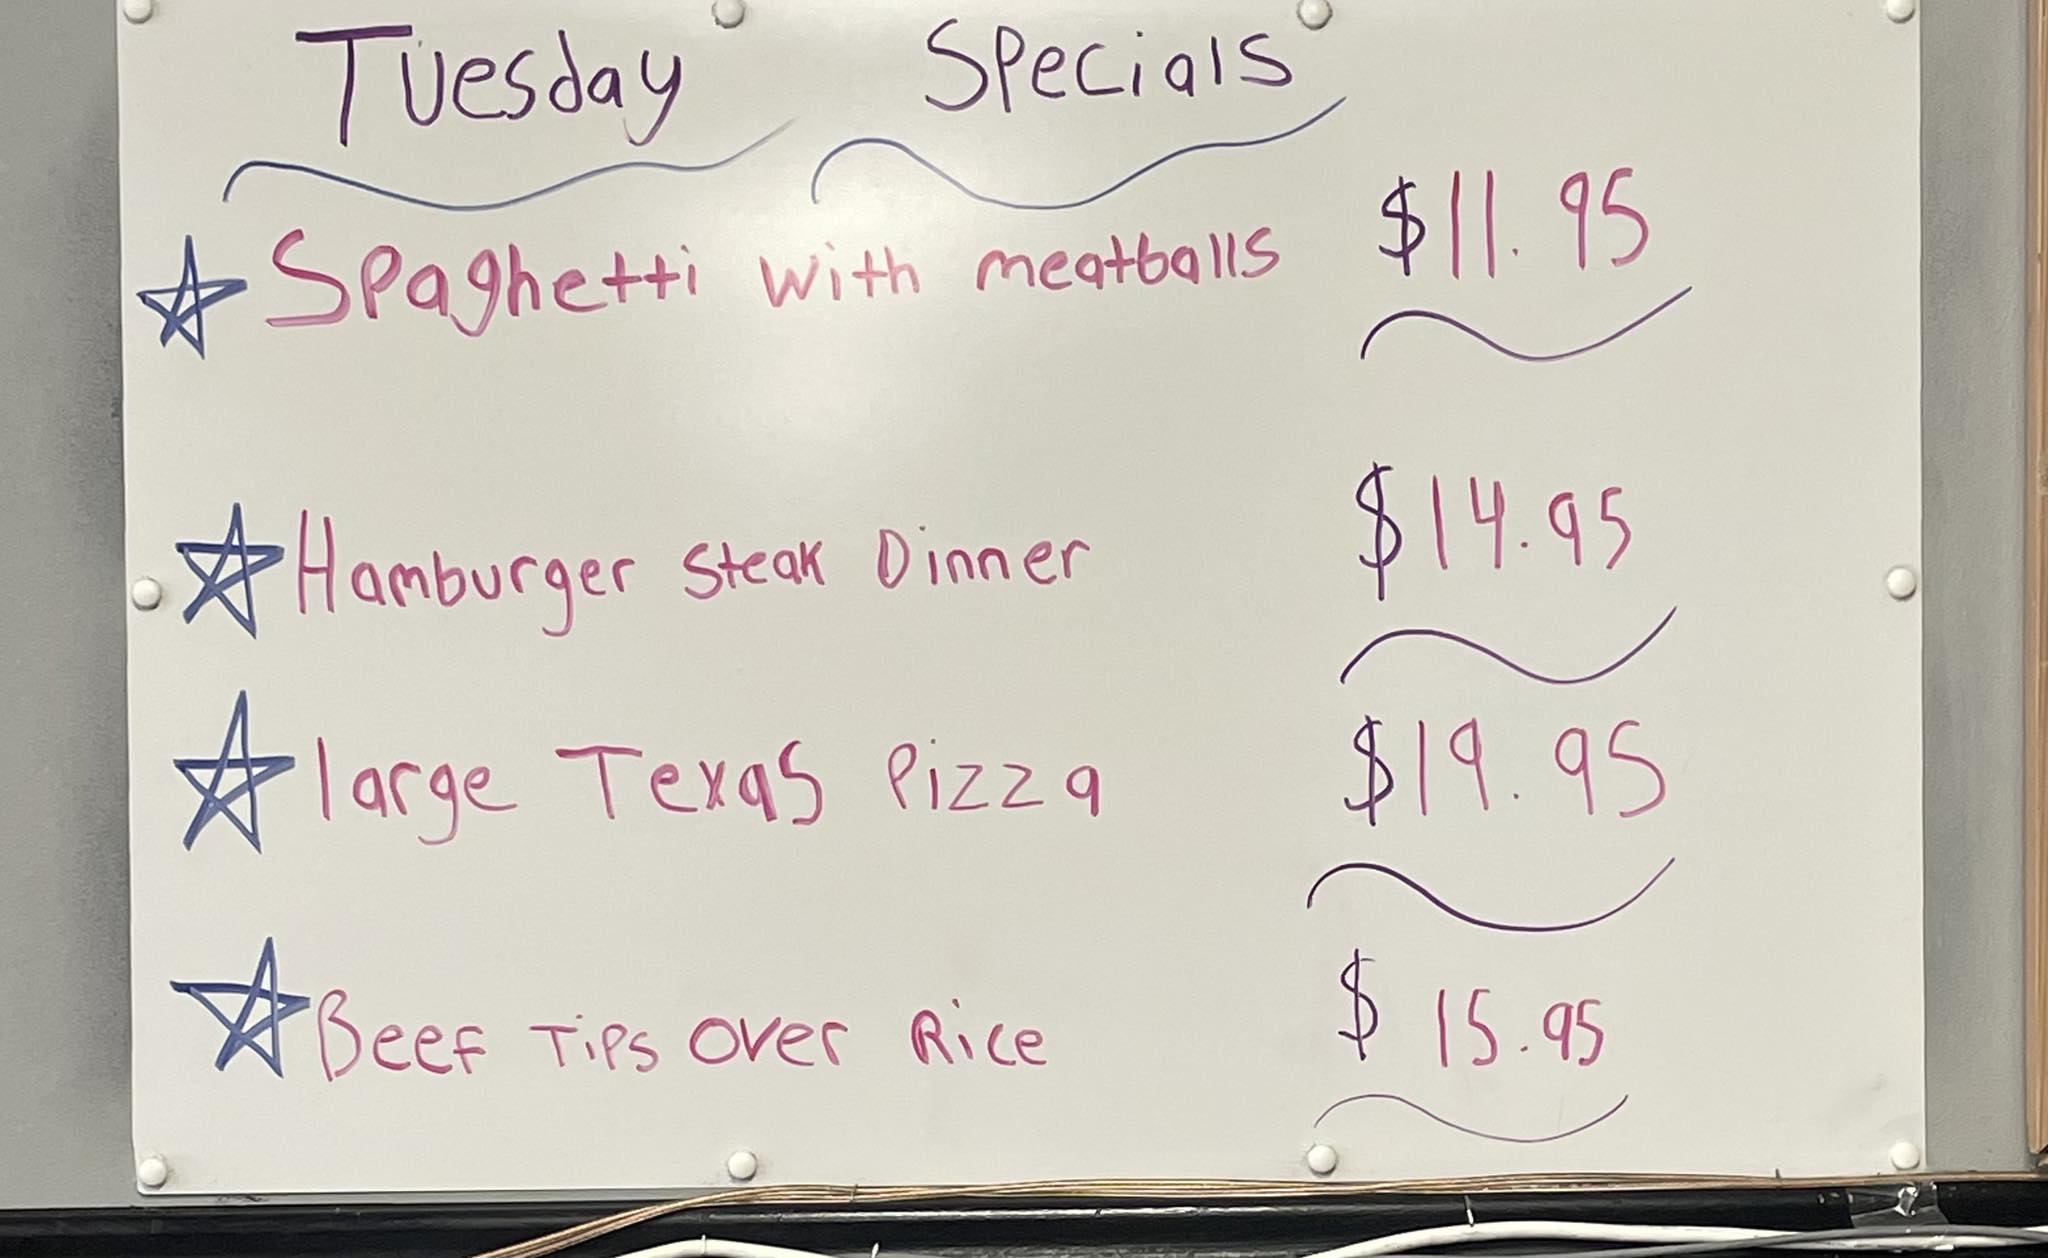 Tuesday Specials
Spaghetti with meatballs $11.95
Hamburger Steak Dinner $14.95
large Texas Pizza $19.95
Beef Tips Over Rice $ 15.95